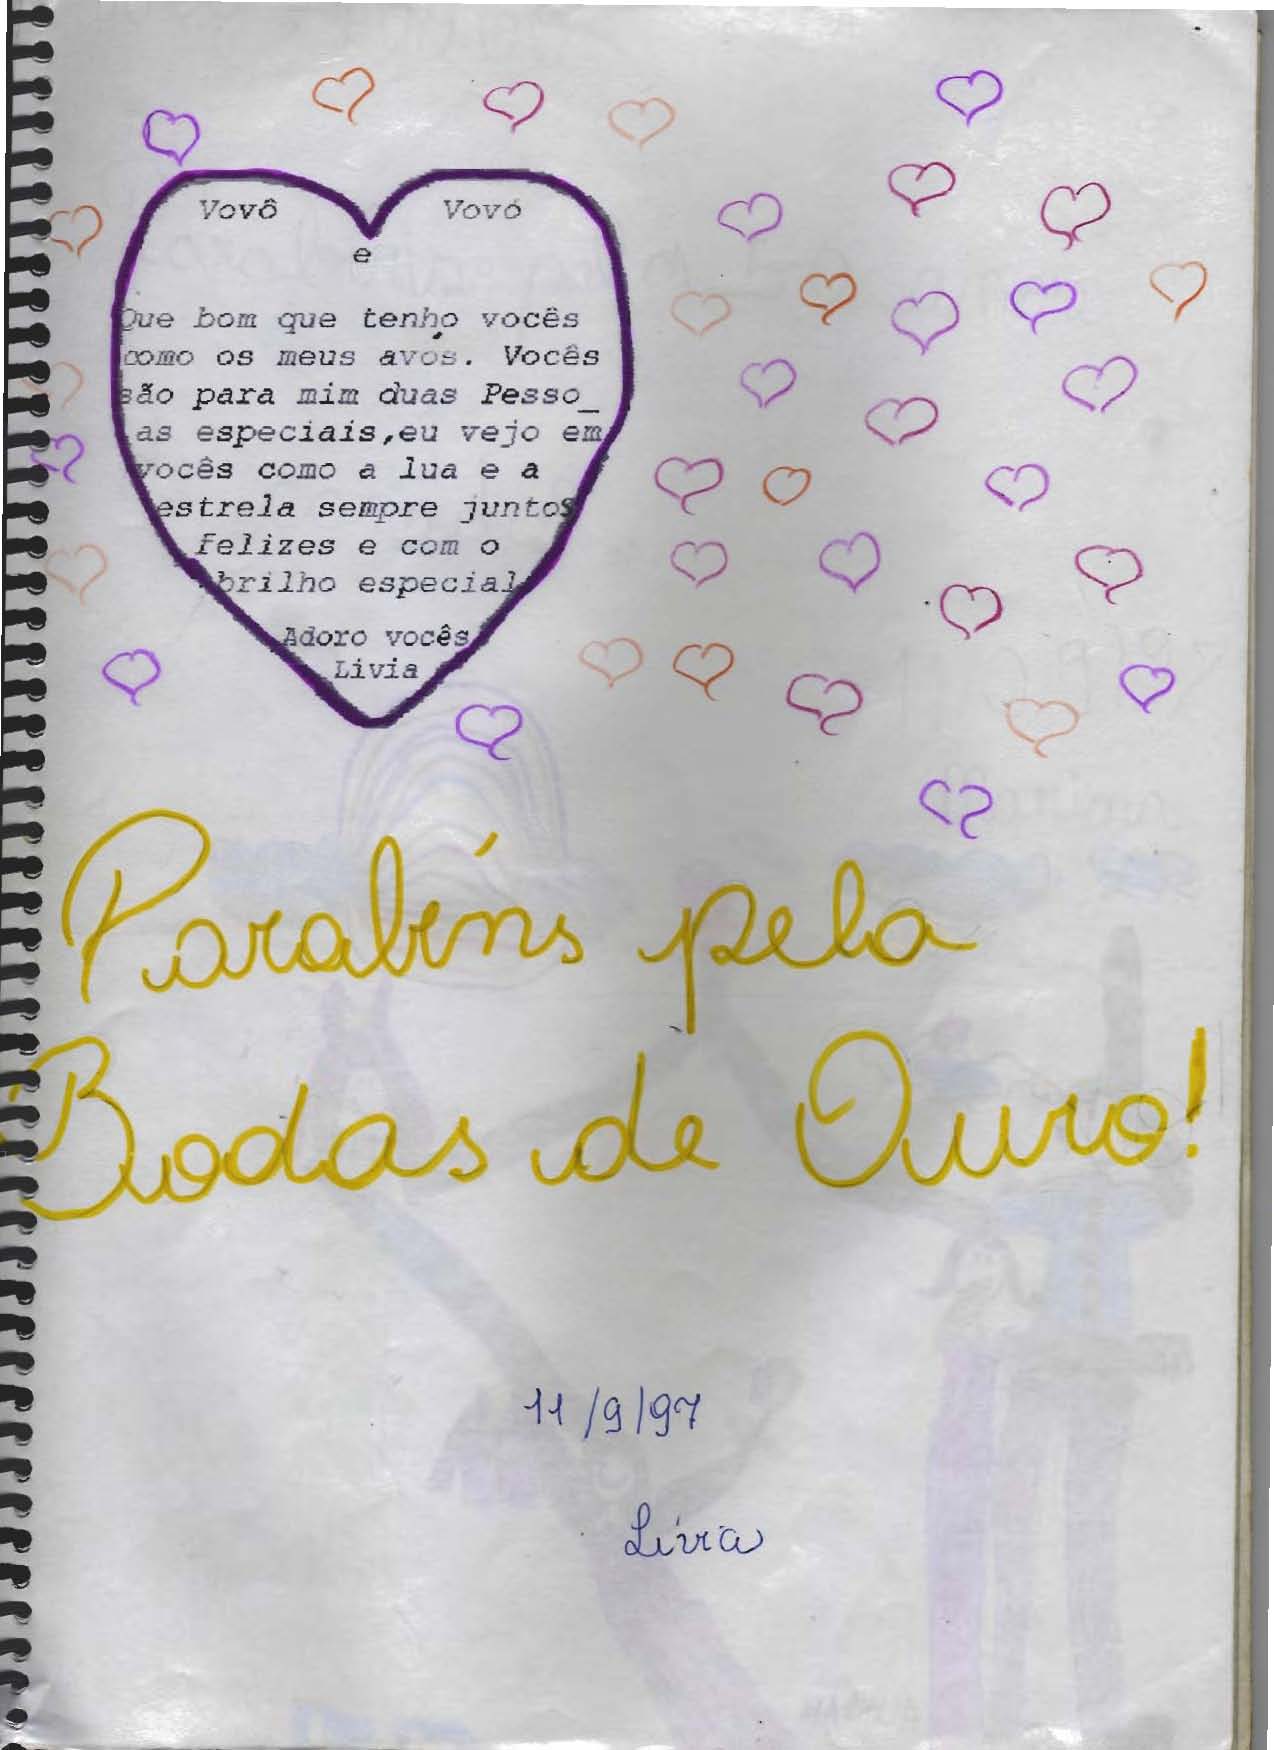 Vovô Vovó
e
Que bom que tenho vocês
como os meus avós. Vocês
são para mim duas Pesso_
as especiais,eu vejo em
vocês como a lua e a
estrela sempre juntos
felizes e com o
brilho especial
Adoro vocês
Livia
Parabéns pela
Bodas de Ouro!
11/9/97
Lívia